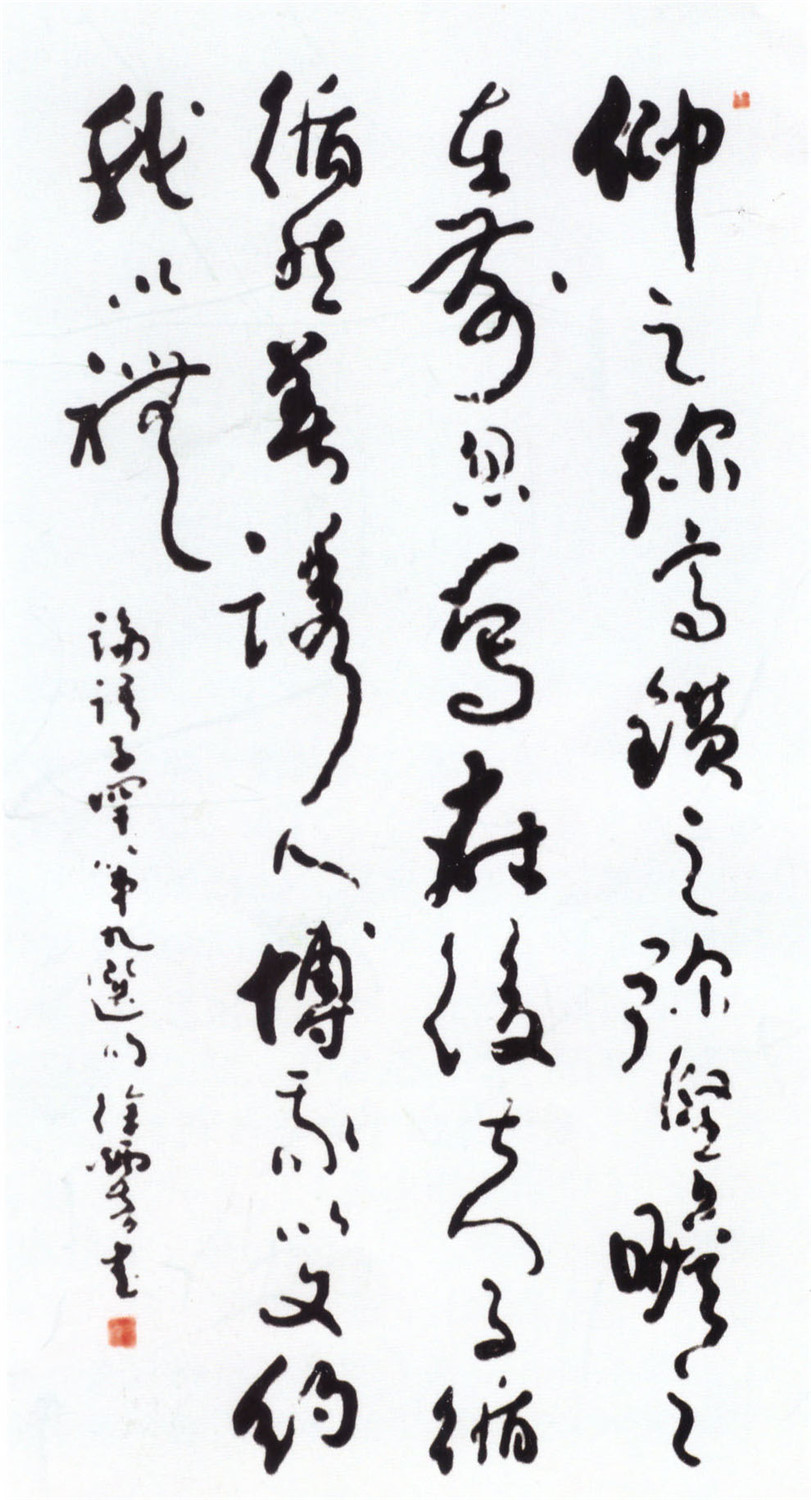 仰之弥高鑽之弥堅瞻之
在前忽焉在後夫子循
循然善誘人博我以文約
我以禮
論語子罕第九選句徐書